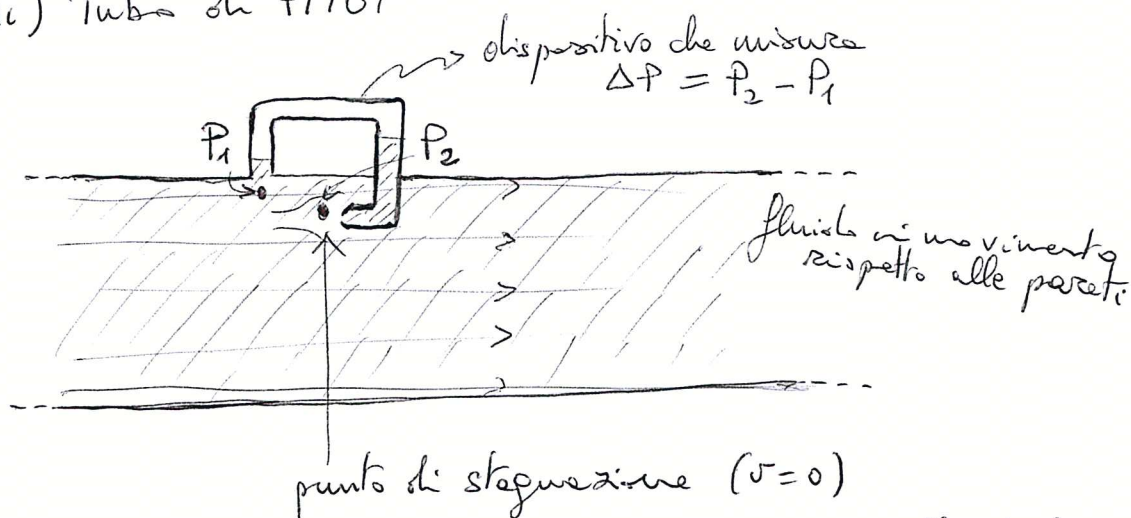 i) Tubo di PITOT
dispositivo che misura
ΔP = P₂ - P₁
P₁
P₂
fluido in movimento
rispetto alle pareti
punto di stagnazione (v=0)